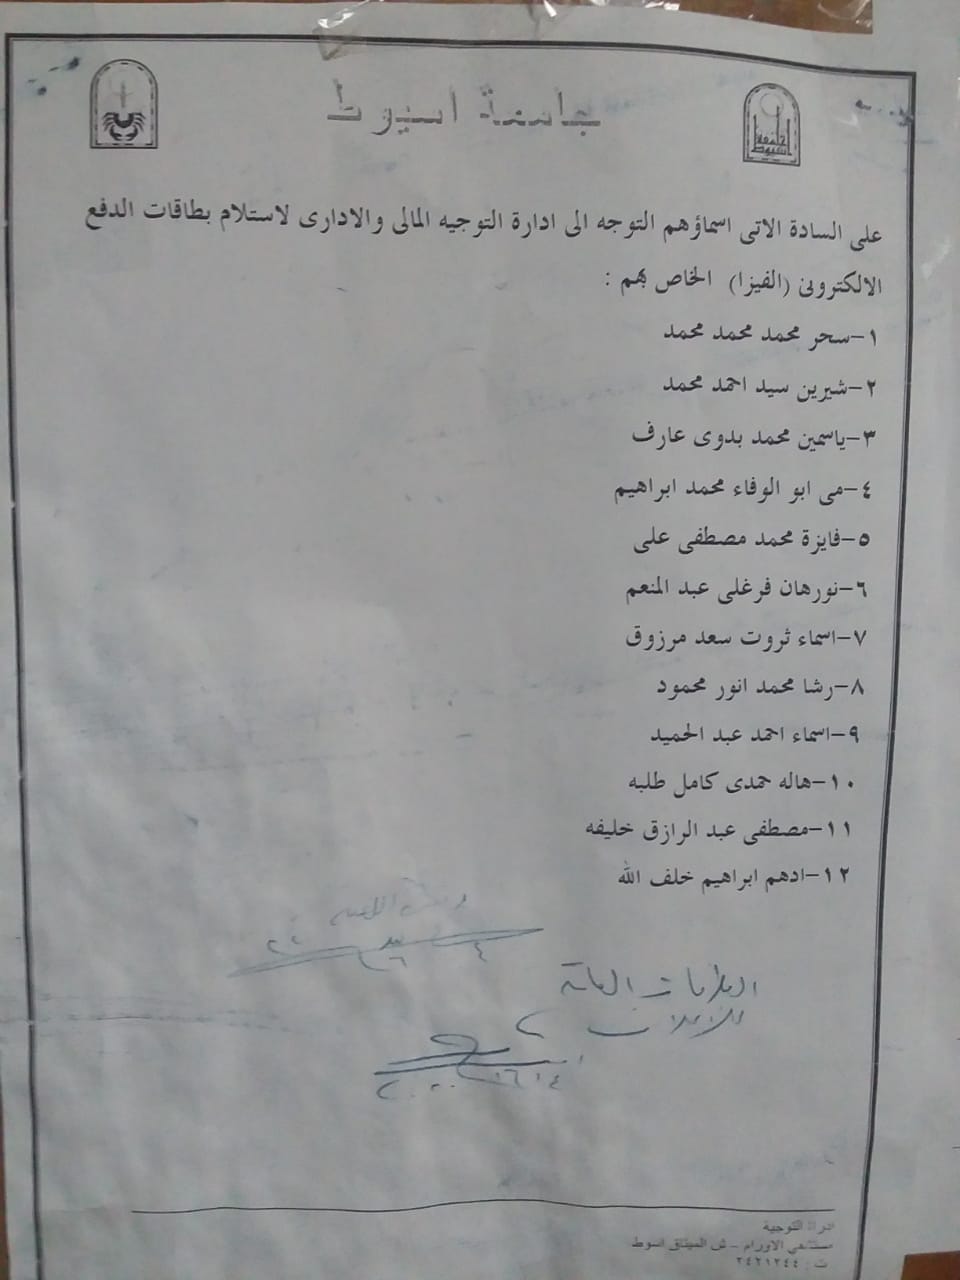 جامعة اسيوط
على السادة الاتى اسماؤهم التوجه الى ادارة التوجيه المالى والادارى لاستلام بطاقات الدفع
الالكترونى (الفيزا) الخاص بهم :
١-سحر محمد محمد محمد
٢-شيرين سيد احمد محمد
٣-ياسمين محمد بدوى عارف
٤-مى ابو الوفاء محمد ابراهيم
٥-فايزة محمد مصطفى على
٦-نورهان فرغلى عبد المنعم
٧-اسماء ثروت سعد مرزوق
٨-رشا محمد انور محمود
٩-اسماء احمد عبد الحميد
١٠-هاله حمدى كامل طلبه
١١-مصطفى عبد الرازق خليفه
١٢-ادهم ابراهيم خلف الله
العلاقات العامة
للاعلان
ادراة التوجية
مستشفي الاورام - ش الميثاق اسوط
ت : ٢٤٢١٢٤٤